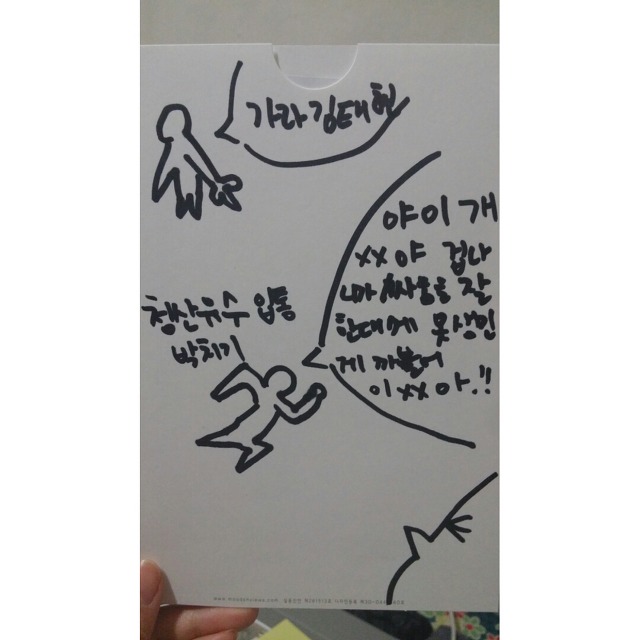 가라 김태현
야 이 개
xx야 겁나
싸움을 잘
한대에 못생긴
게 까불어
이 xx아.!!
청산유수 입통
박치기